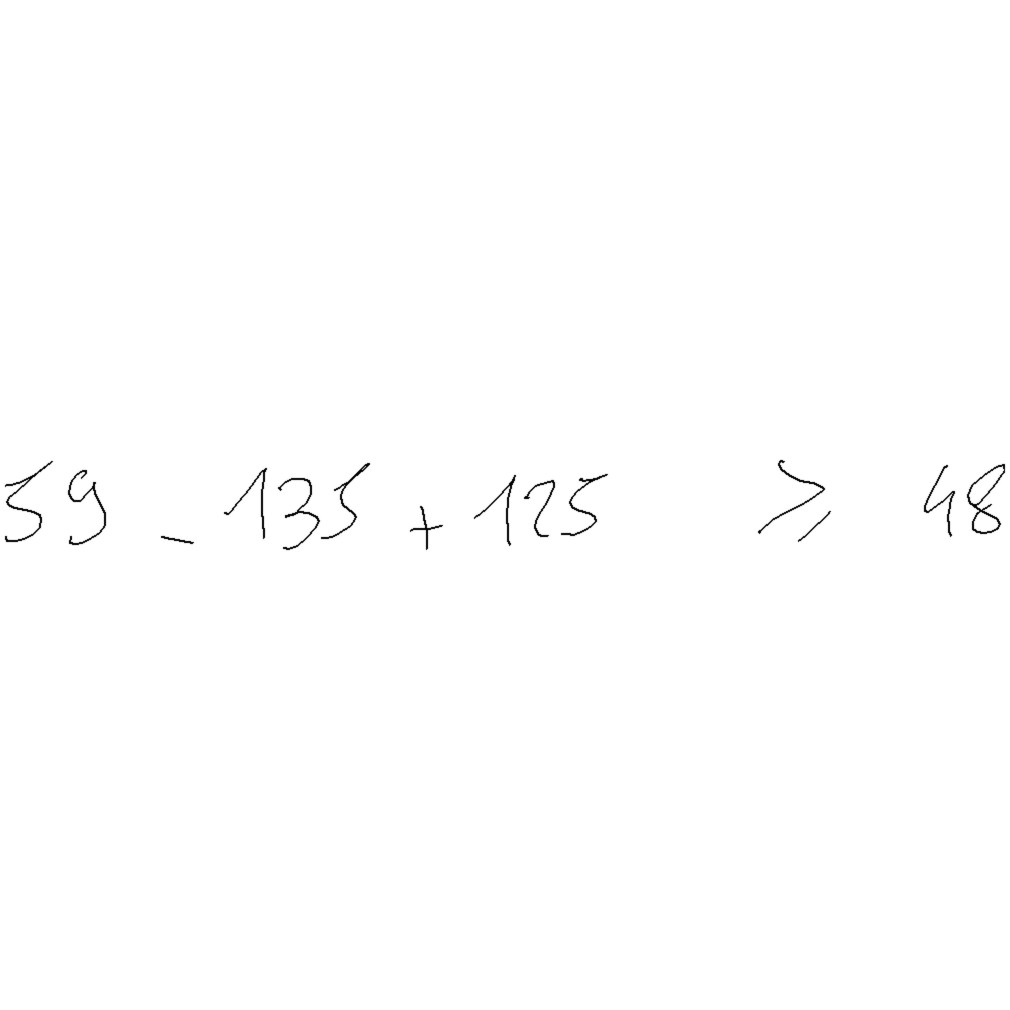 59 - 135 + 125 ⩾ 48